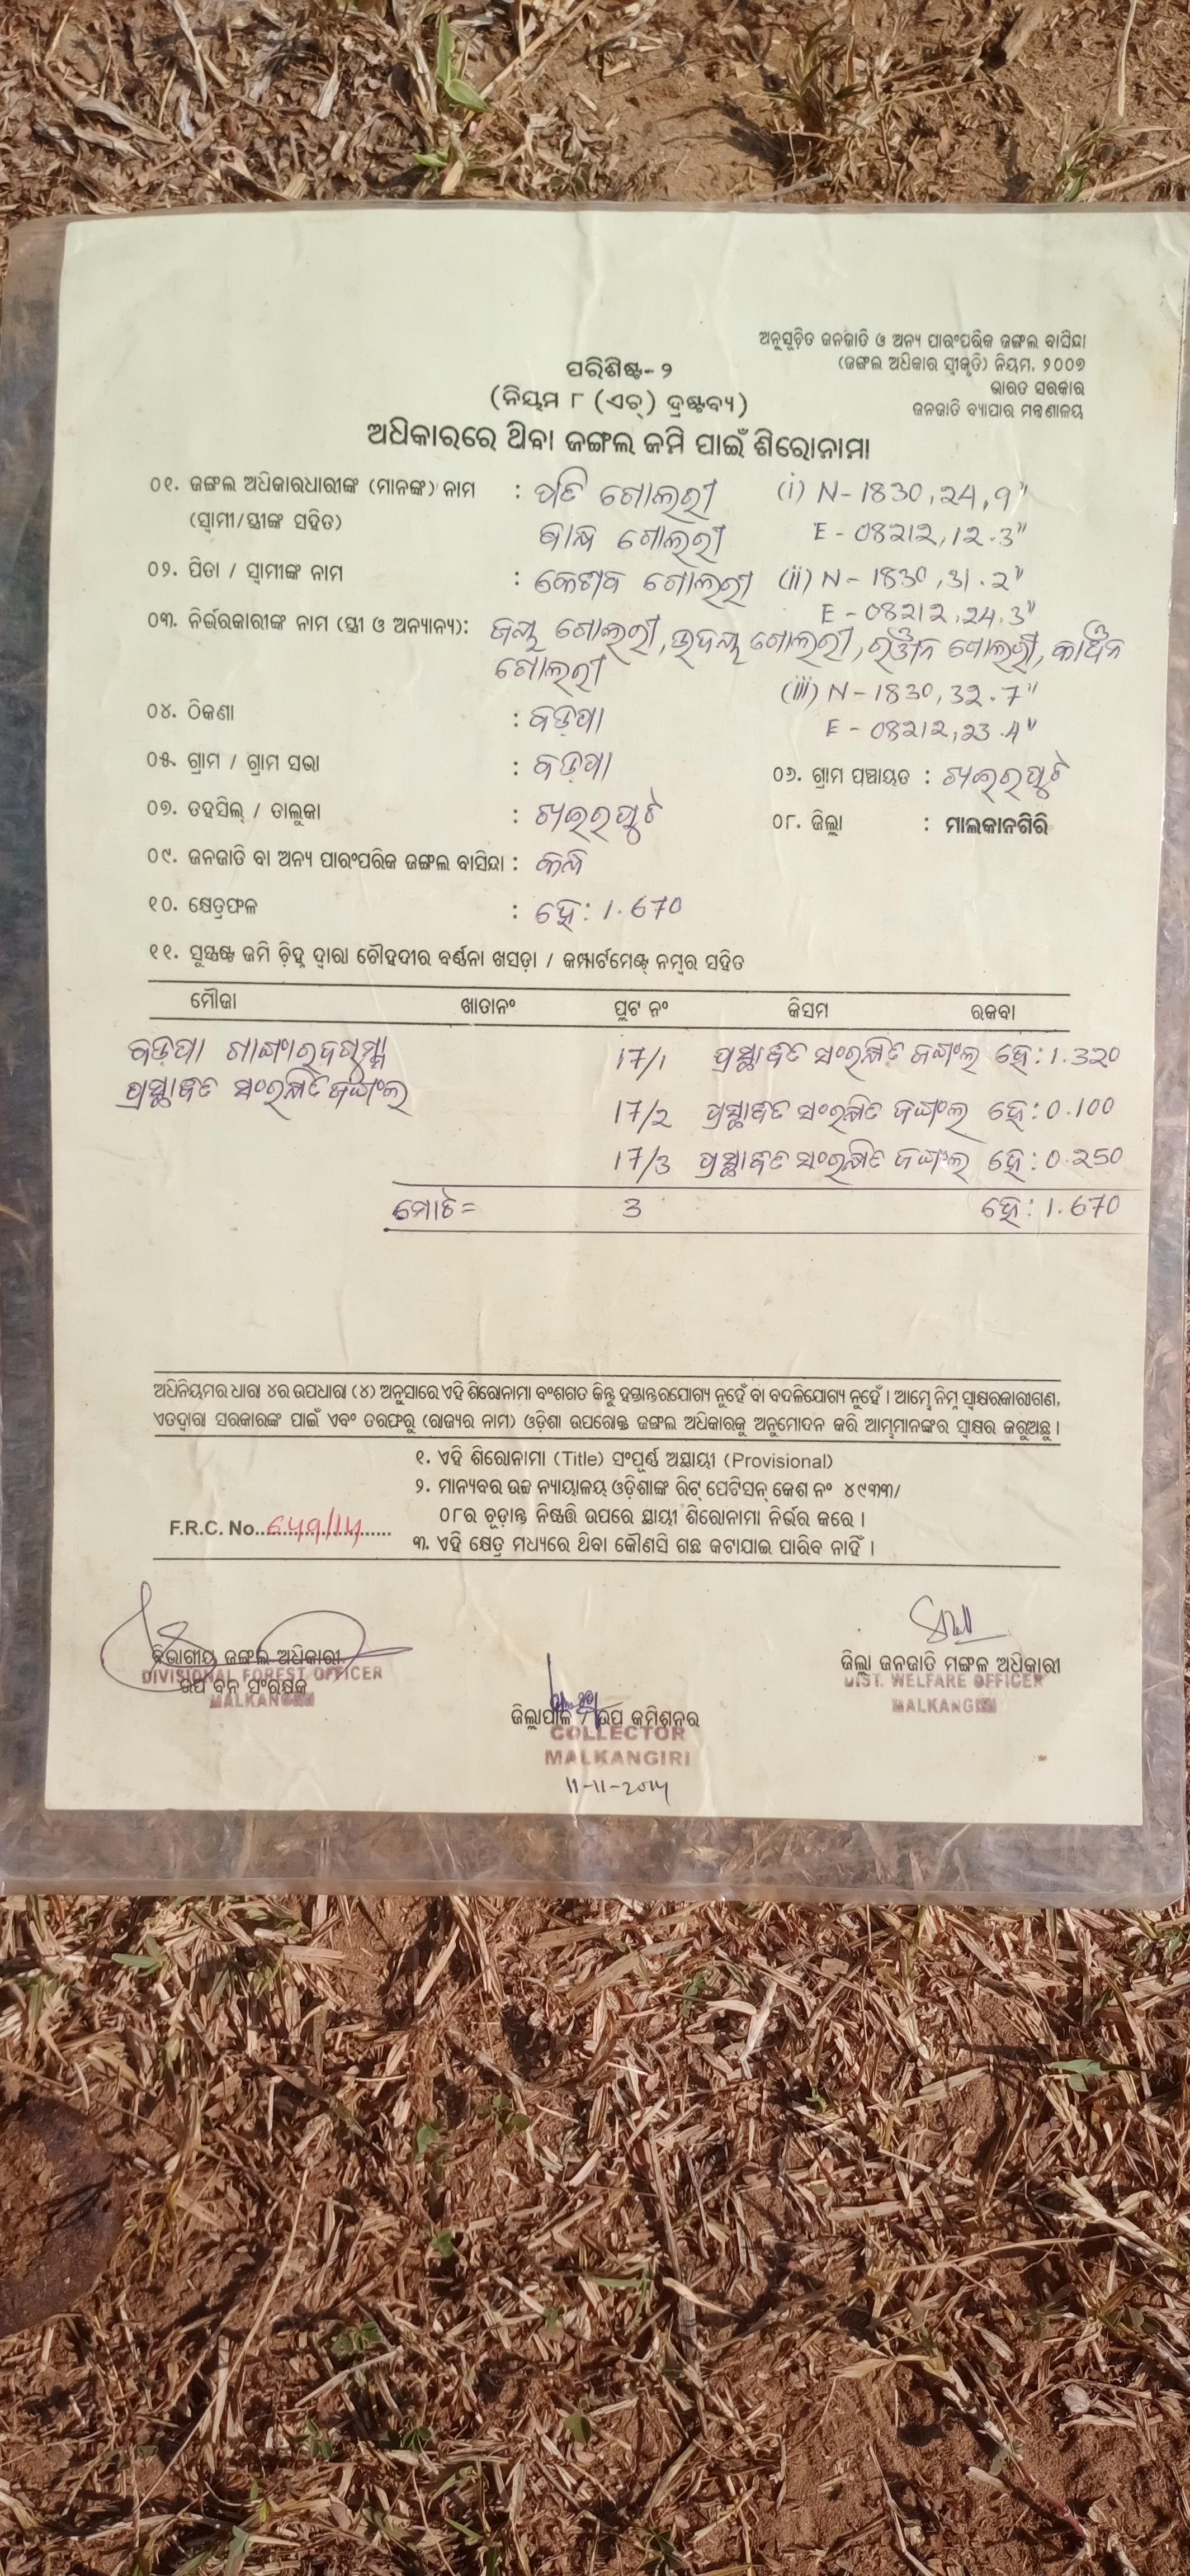 ଅନୁସୂଚିତ ଜନଜାତି ଓ ଅନ୍ୟ ପାରଂପରିକ ଜଙ୍ଗଲ ବାସିନ୍ଦା
(ଜଙ୍ଗଲ ଅଧିକାର ସ୍ୱୀକୃତି) ନିୟମ, ୨୦୦୭
ଭାରତ ସରକାର
ଜନଜାତି ବ୍ୟାପାର ମନ୍ତ୍ରଣାଳୟ
ପରିଶିଷ୍ଟ- ୨
(ନିୟମ ୮ (ଏଚ୍) ଦ୍ରଷ୍ଟବ୍ୟ)
ଅଧିକାରରେ ଥିବା ଜଙ୍ଗଲ ଜମି ପାଇଁ ଶିରୋନାମା
୦୧. ଜଙ୍ଗଲ ଅଧିକାରଧାରୀଙ୍କ (ମାନଙ୍କ) ନାମ : ପତି ଗୋଲରୀ (i) N-1830,24,9"
(ସ୍ୱାମୀ/ସ୍ତ୍ରୀଙ୍କ ସହିତ) ଗୋଲରୀ E-08212,12.3"
୦୨. ପିତା / ସ୍ୱାମୀଙ୍କ ନାମ : କେଶବ ଗୋଲରୀ (ii) N-1830,31.2"
E-08212,24.3"
୦୩. ନିର୍ଭରକାରୀଙ୍କ ନାମ (ସ୍ତ୍ରୀ ଓ ଅନ୍ୟାନ୍ୟ): ଗୋଲରୀ, ଗୋଲରୀ, ଗୋଲରୀ,
ଗୋଲରୀ
(iii) N-1830,32.7"
୦୪. ଠିକଣା : ବଡ଼ପା E-08212,23.4"
୦୫. ଗ୍ରାମ / ଗ୍ରାମ ସଭା : ବଡ଼ପା ୦୬. ଗ୍ରାମ ପଞ୍ଚାୟତ : ଖଇରପୁଟ
୦୭. ତହସିଲ୍ / ତାଲୁକା : ଖଇରପୁଟ ୦୮. ଜିଲ୍ଲା : ମାଲକାନଗିରି
୦୯. ଜନଜାତି ବା ଅନ୍ୟ ପାରଂପରିକ ଜଙ୍ଗଲ ବାସିନ୍ଦା : କନ୍ଧ
୧୦. କ୍ଷେତ୍ରଫଳ : ହେ: 1.670
୧୧. ସୁସ୍ପଷ୍ଟ ଜମି ଚିହ୍ନ ଦ୍ୱାରା ଚୌହଦୀର ବର୍ଣ୍ଣନା ଖସଡ଼ା / କମ୍ପାର୍ଟମେଣ୍ଟ୍ ନମ୍ବର ସହିତ
ମୌଜା ଖାତାନଂ ପ୍ଲଟ ନଂ କିସମ ରକବା
ବଡ଼ପା 17/1 ପ୍ରସ୍ଥାବିତ ସଂରକ୍ଷିତ ଜଙ୍ଗଲ ହେ: 1.320
ପ୍ରସ୍ଥାବିତ ସଂରକ୍ଷିତ ଜଙ୍ଗଲ
17/2 ପ୍ରସ୍ଥାବିତ ସଂରକ୍ଷିତ ଜଙ୍ଗଲ ହେ: 0.100
17/3 ପ୍ରସ୍ଥାବିତ ସଂରକ୍ଷିତ ଜଙ୍ଗଲ ହେ: 0.250
ମୋଟ= 3 ହେ: 1.670
ଅଧିନିୟମର ଧାରା ୪ର ଉପଧାରା (୪) ଅନୁସାରେ ଏହି ଶିରୋନାମା ବଂଶଗତ କିନ୍ତୁ ହସ୍ତାନ୍ତରଯୋଗ୍ୟ ନୁହେଁ ବା ବଦଳିଯୋଗ୍ୟ ନୁହେଁ । ଆମ୍ଭେ ନିମ୍ନ ସ୍ୱାକ୍ଷରକାରୀଗଣ,
ଏତଦ୍ୱାରା ସରକାରଙ୍କ ପାଇଁ ଏବଂ ତରଫରୁ (ରାଜ୍ୟର ନାମ) ଓଡ଼ିଶା ଉପରୋକ୍ତ ଜଙ୍ଗଲ ଅଧିକାରକୁ ଅନୁମୋଦନ କରି ଆମ୍ଭମାନଙ୍କର ସ୍ୱାକ୍ଷର କରୁଅଛୁ ।
୧. ଏହି ଶିରୋନାମା (Title) ସଂପୂର୍ଣ୍ଣ ଅସ୍ଥାୟୀ (Provisional)
୨. ମାନ୍ୟବର ଉଚ୍ଚ ନ୍ୟାୟାଳୟ ଓଡ଼ିଶାଙ୍କ ରିଟ୍ ପେଟିସନ୍ କେଶ ନଂ ୪୯୩୩/
୦୮ର ଚୂଡ଼ାନ୍ତ ନିଷ୍ପତ୍ତି ଉପରେ ସ୍ଥାୟୀ ଶିରୋନାମା ନିର୍ଭର କରେ ।
F.R.C. No..................
୩. ଏହି କ୍ଷେତ୍ର ମଧ୍ୟରେ ଥିବା କୌଣସି ଗଛ କଟାଯାଇ ପାରିବ ନାହିଁ ।
ବିଭାଗୀୟ ଜଙ୍ଗଲ ଅଧିକାରୀ
DIVISIONAL FOREST OFFICER
ଉପ ବନ ସଂରକ୍ଷକ
MALKANGIRI
ଜିଲ୍ଲା ଜନଜାତି ମଙ୍ଗଳ ଅଧିକାରୀ
DIST. WELFARE OFFICER
MALKANGIRI
ଜିଲ୍ଲାପାଳ / ଉପ କମିଶନର
COLLECTOR
MALKANGIRI
11-11-2014